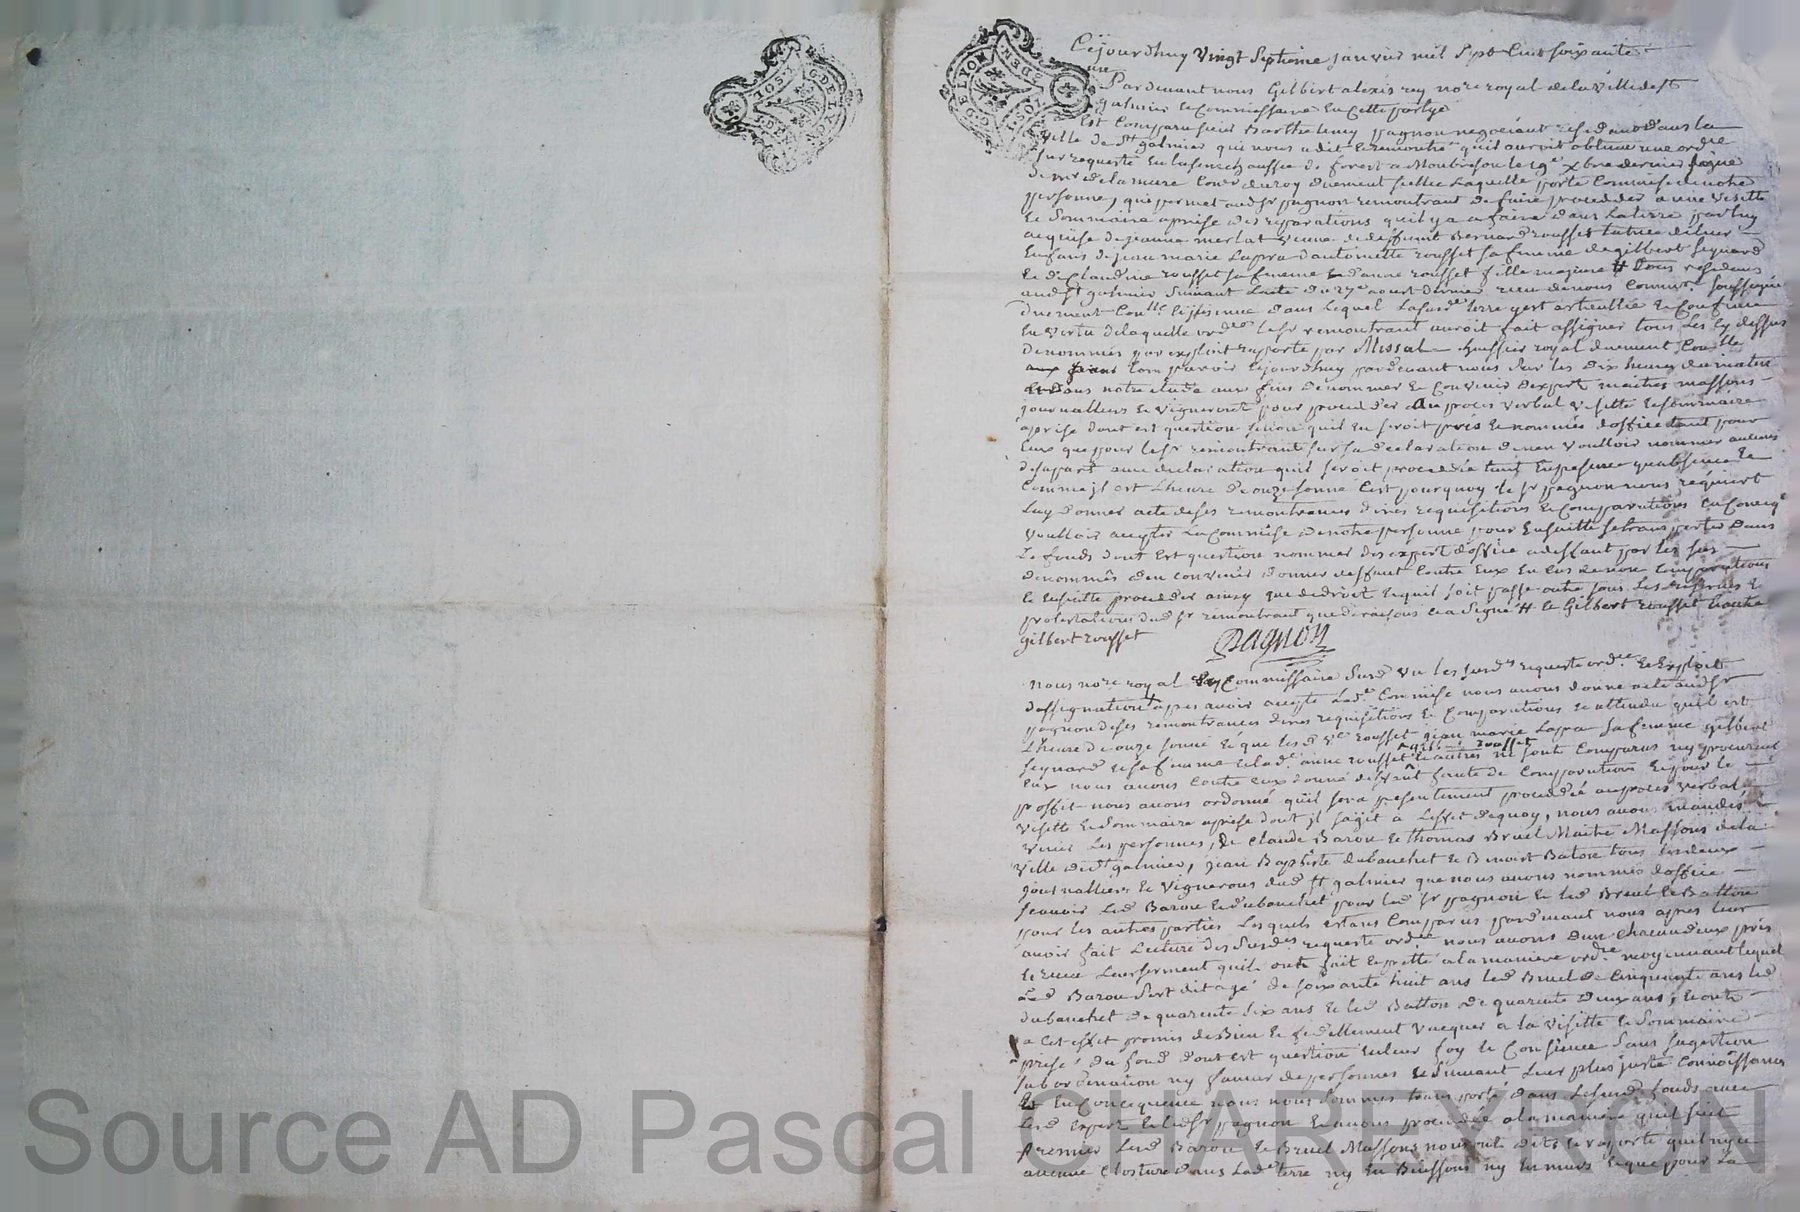 G. DE LYON
SOL
G. D. E LYON
SOL
Cejourdhuy Vingt Septieme janvier mil Sept Cent soixante
une
Pardevant nous Gilbert alexis rey no.re royal de la ville de St
galmier et Commissaire En Cette partye
Est Comparu sieur Barthelemy pagnon negociant residant dans la
ville de St galmier qui nous a dit et remontré quil auroit obtenu une ord.ce
sur requeste En la senechaussée de forest a Montbrison le 19e xbre dernier signé
de mr de la mure Con.er du roy duement scellée Laquelle porte Commise de notre
personne, que permet aud. sr pagnon remontrant de faire proceder a une visitte
et Sommaire aprise des reparations quil y a a faire dans La terre par luy
acquise de jeanne merlat veuve de deffunt Bernard rousset tutrice de leur
Enfans de jean marie Lapra d'antoinette rousset sa femme de gilbert seguard
et de Claudine rousset sa femme et d'anne rousset fille majeure # tous residans
aud. St galmier Suivant L'acte du 27e aoust dernier recu de nous Commis.re soussigné
duement Conllé dans lequel La sus de terre y est articullée et Confinée
En vertu de laquelle ord.ce le sr remontrant auroit fait assigner tous Les cy dessus
denommés par exploit raporté par Missal huissier royal duement Conllé
Comparoir Cejourdhuy pardevant nous sur les dix heures du matin
dans notre étude aux fins de nommer et Convenir d'expert maitres massons
journalliers et vignerons pour proceder au proces verbal visitte et sommaire
aprise dont est question sinon quil En seroit pris et nommés d'office tant pour
Eux que pour le sr remontrant sur sa declaration de n'en voulloir nommer aucuns
de sa part avec declaration quil seroit procedé tant En presence quabsence Et
Comme jl est L'heure de onze sonné C'est pourquoy le sr pagnon nous requiert
Luy donner acte de ses remontrances dires requisitions et Comparutions En Conceq.ce
voulloir accepter La Commise de notre personne pour Ensuitte se transporter dans
Le fonds dont Est question nommer des expert d'office a deffaut par les sus
denommés d'en convenir donner deffaut Contre Eux En Cas de non Comparutions
Et Ensuitte proceder ainsy que de droit Et quil soit passé outre sous Les reserves et
protestations dud. sr remontrant que de raisons et a signé # et Gilbert rousset
gilbert rousset
Pagnon
Nous no.re royal Commissaire Susd. vu les susd.s requeste ord.ce et Exploit
d'assignation apres avoir accepté Lad.e Commise nous avons donné acte aud. sr
pagnon de ses remontrances dires requisitions et Comparutions et attendu quil est
L'heure de onze sonné et que les d. v.e rousset jean marie Lapra sa femme gilbert
rousset
seguard et sa femme et lad.e anne rousset et autres ne sont Comparus ny procureur
Eux nous avons Contre Eux donné deffaut faute de Comparution Et pour le
proffit nous avons ordonné quil sera presentement procedé au proces verbal
visitte et Sommaire aprise dont jl sagit a L'effet de quoy, nous avons mandés
venir Les personnes, de Claude Barou et thomas Bruel Maitre Massons de la
ville de St galmier, jean Baptiste dubanchet et Benoist Baton tous les deux
journalliers et vignerons dud. St galmier que nous avons nommés d'office
sçavoir Led. Barou et dubanchet pour led. sr pagnon et led. Bruel et Batton
pour les autres parties Lesquels estans Comparus pardevant nous apres leur
avoir fait Lecture des Susd.s requeste ord.ce nous avons d'un Chacun d'eux pris
et recu Leur serment quils ont fait et pretté a la maniere ord.re moyennant lequel
Led. Barou s'est dit agé de soixante huit ans led. Bruel de Cinquante ans led.
dubanchet de quarente six ans et led. Batton de quarente deux ans, et ont
a cet effet promis de Bien et fidellement vacquer a la visitte et Sommaire
prise du fond dont est question En leur foy et Consience Sans sugestion
subordination ny faveur de personnes et Suivant Leur plus juste Connoissance
Et En Concequence nous nous sommes transporté dans Le susd. fonds avec
Lesd. expert et led. sr pagnon et avons procedé a la maniere qui suit
Premier Lesd. Barou et Bruel Massons nous ont dits et raporté quil n'y a
aucune Closture dans Lad.e terre ny En Buissons ny En murs Et que pour La
Source AD Pascal CHAREYRON